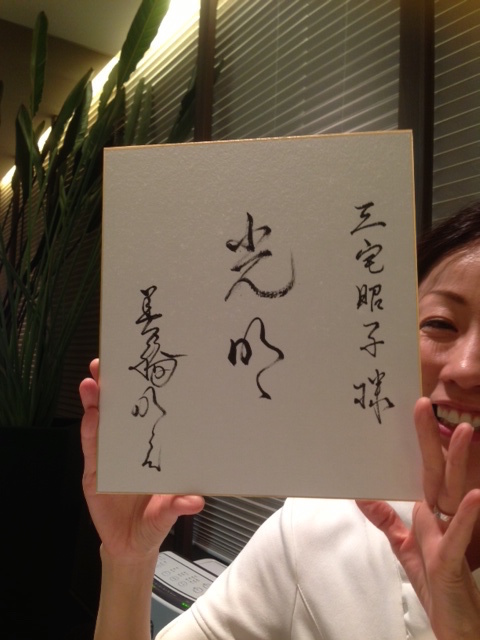 三宅昭子様
光明
美輪明宏